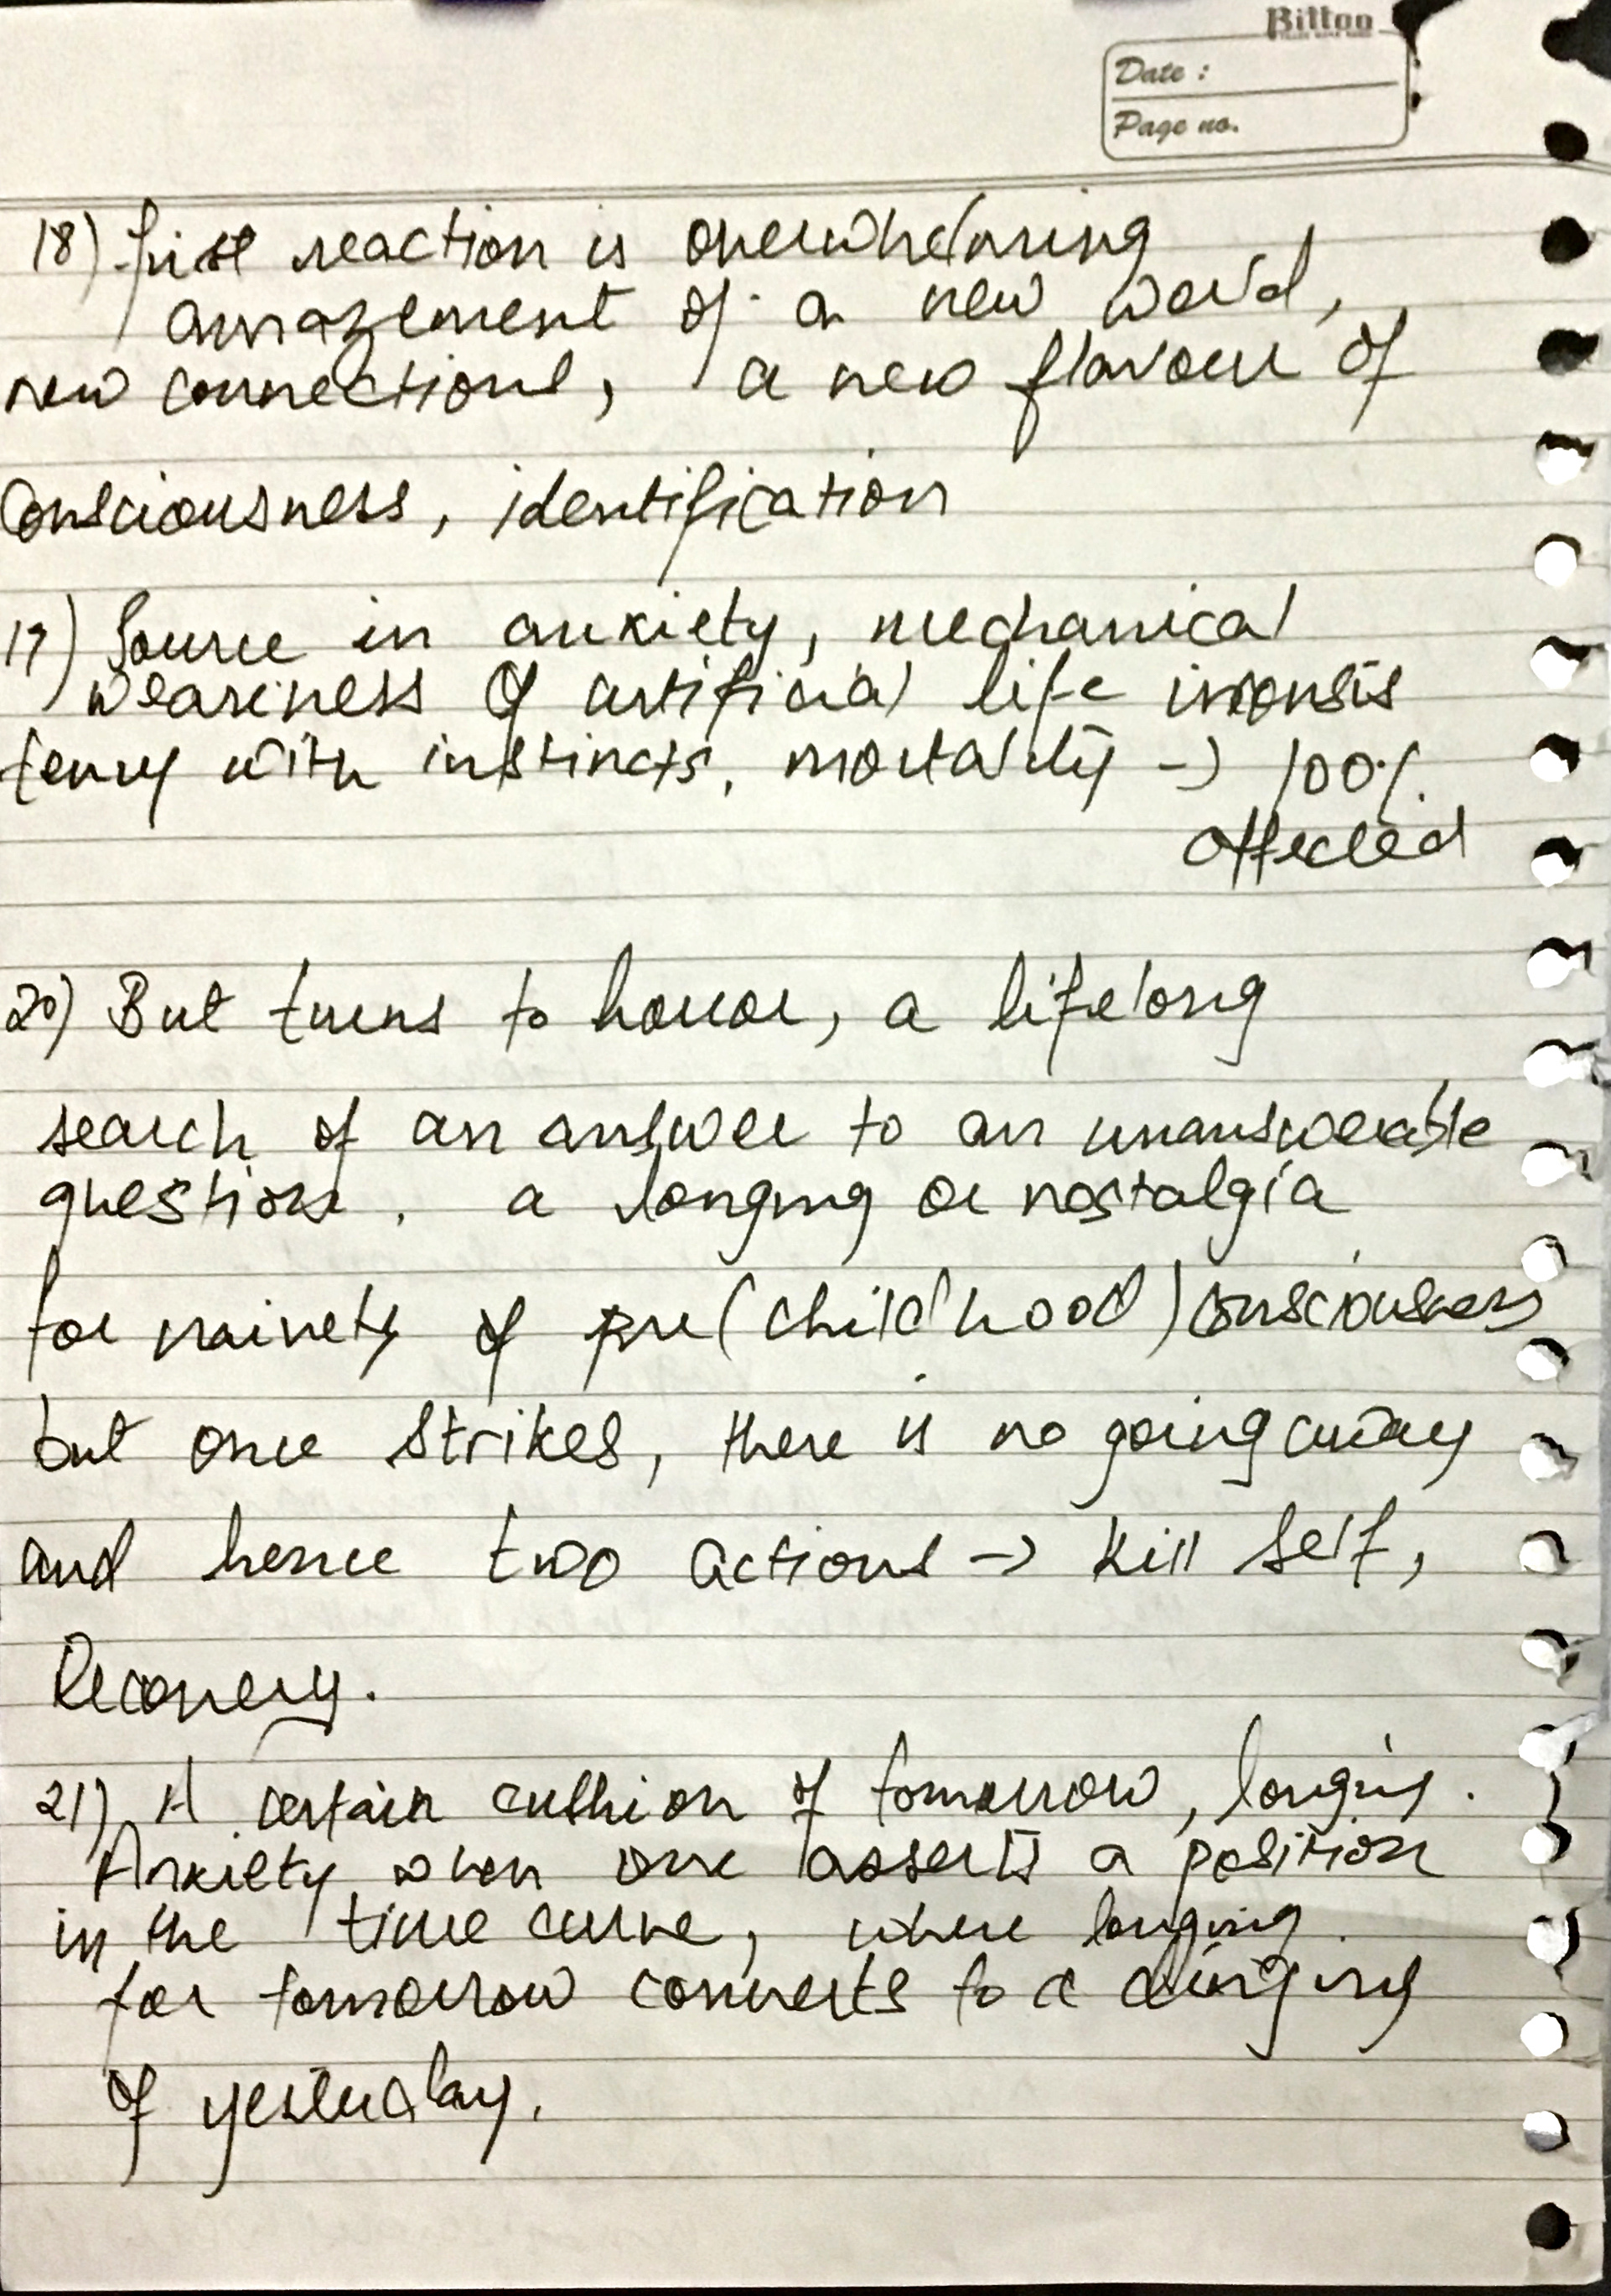 Bittoo
Date :
Page no.
18) first reaction is overwhelming
amazement of a new world,
new connections, a new flavour of
Consciousness, identification
19) Source in anxiety, mechanical
weariness of artificial life inconsis
tency with instincts, mortality → 100%
affected
20) But turns to horror, a lifelong
search of an answer to an unanswerable
question, a longing or nostalgia
for naivety of pre(childhood) consciousness
but once strikes, there is no going away
and hence two actions → kill self,
Recovery.
21) A certain cushion of tomorrow, longing.
Anxiety when one asserts a position
in the time curve, where longing
for tomorrow converts to a clinging
of yesterday.